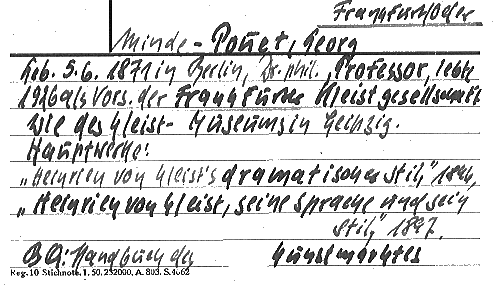 Frankfurt/Oder
Minde-Pouet, Georg
Geb. 5.6. 1871 in Berlin, Dr. phil., Professor, lebte
1926 als Vors. der Frankfurter Kleistgesellschaft
wie des Kleist-Museums in Leipzig.
Hauptwerke:
„Heinrich von Kleist's dramatischer Stil," 1896,
„Heinrich von Kleist, seine Sprache und sein
Stil," 1897.
BA: Handbuch des Kunstmarktes
Reg. 10 Stichnotn. 1. 50. 232000, A. 803. S. 4662